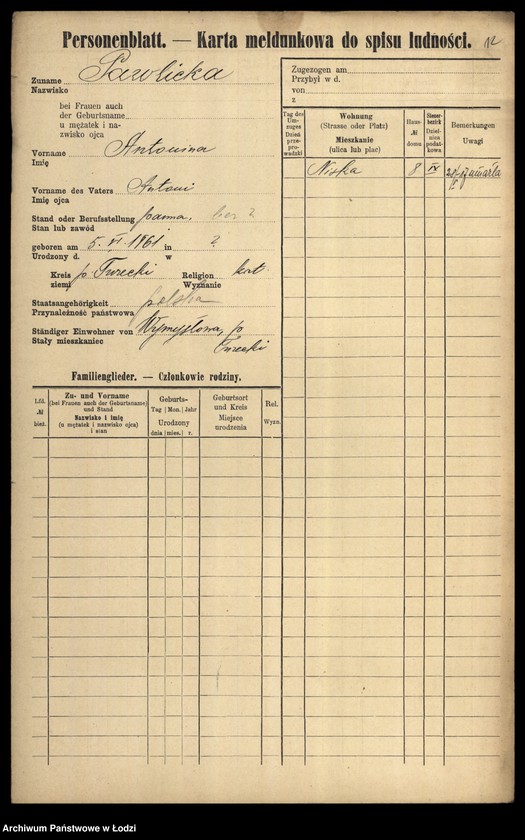 Personenblatt. — Karta meldunkowa do spisu ludności. 12
Zuname Pawlicka
Nazwisko
bei Frauen auch
der Geburtsname
u mężatek i na-
zwisko ojca
Vorname Antonina
Imię
Vorname des Vaters Antoni
Imię ojca
Stand oder Berufsstellung panna. bez ?
Stan lub zawód
geboren am 5. VI. 1861 in ?
Urodzony d. w
Kreis p. Turecki Religion kat.
ziemi Wyznanie
Staatsangehörigkeit polska
Przynależność państwowa
Ständiger Einwohner von Wymysłowa, p.
Stały mieszkaniec Turecki
Familienglieder. — Członkowie rodziny.
Lfd. № bież.
Zu- und Vorname
(bei Frauen auch der Geburtsname)
und Stand
Nazwisko i imię
(u mężatek i nazwisko ojca)
i stan
Geburts-
Tag Mon. Jahr
Urodzony
dnia mies. r.
Geburtsort
und Kreis
Miejsce
urodzenia
Rel.
Wyzn.
Zugezogen am
Przybył w d.
von
z
Tag des
Um-
zuges
Dzień
prze-
prowadzki
Wohnung
(Strasse oder Platz)
Mieszkanie
(ulica lub plac)
Haus-
№
domu
Steuer-
bezirk
Dziel-
nica
podat-
kowa
Bemerkungen
Uwagi
Niska 8 IV umarła
Archiwum Państwowe w Łodzi